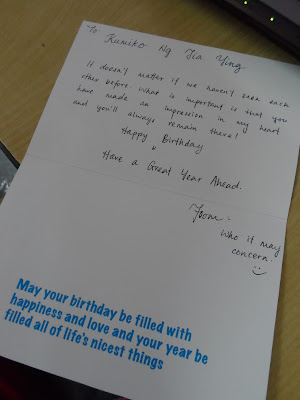 To
Kumiko Ng Jia Ying
It doesn't matter if we haven't seen each
other before. What is important is that you
have made an impression in my heart
and you'll always remain there!
Happy Birthday
&
Have a Great Year Ahead.
From:
Who it may
concern.
May your birthday be filled with
happiness and love and your year be
filled all of life's nicest things